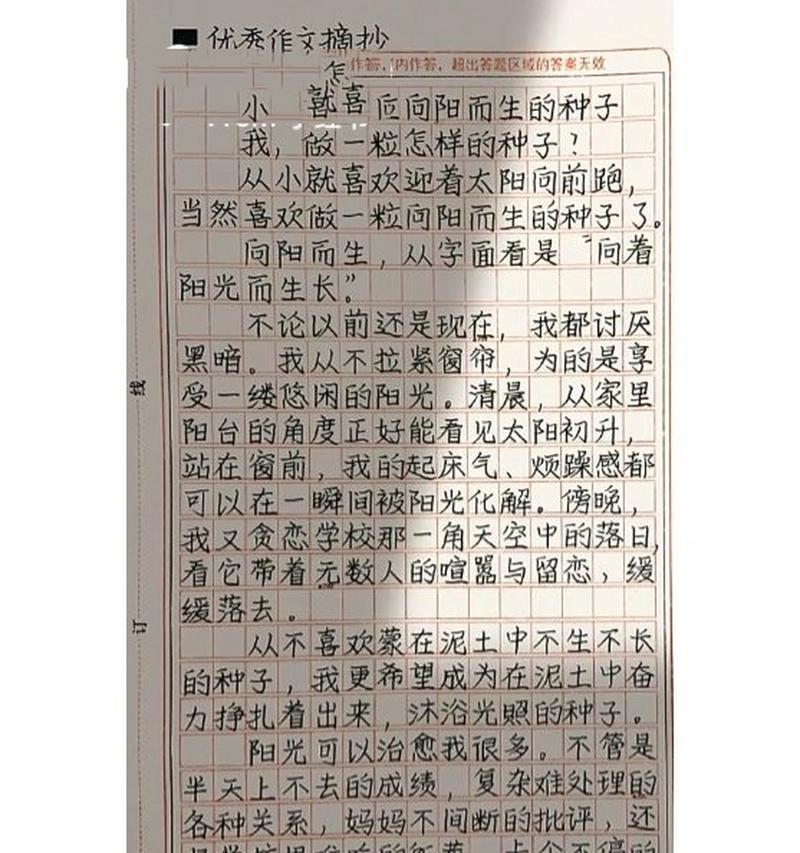 优秀作文摘抄
怎
作答，内作答，超出答题区域的答案无效
小 就喜 向阳而生的种子
我，做一粒怎样的种子？
从小就喜欢迎着太阳向前跑，
当然喜欢做一粒向阳而生的种子了。
向阳而生，从字面看是“向着
阳光而生长”。
不论以前还是现在，我都讨厌
黑暗。我从不拉紧窗帘，为的是享
受一缕悠闲的阳光。清晨，从家里
阳台的角度正好能看见太阳初升，
站在窗前，我的起床气、烦躁感都
可以在一瞬间被阳光化解。傍晚，
我又贪恋学校那一角天空中的落日，
看它带着无数人的喧嚣与留恋，缓
缓落去。
从不喜欢蒙在泥土中不生不长
的种子，我更希望成为在泥土中奋
力挣扎着出来，沐浴光照的种子。
阳光可以治愈我很多。不管是
半天上不去的成绩，复杂难处理的
各种关系，妈妈不间断的批评，还
线
订